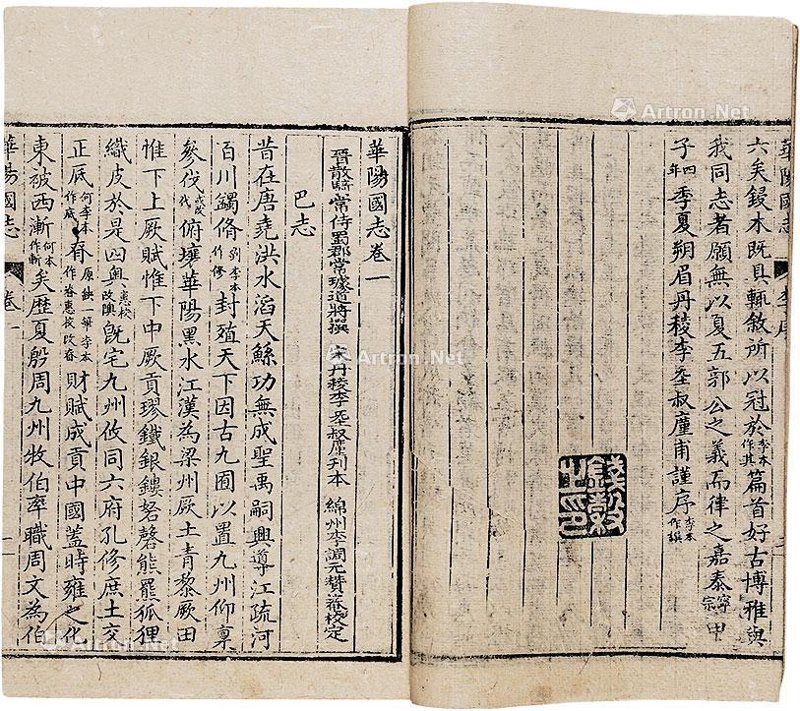 華陽國志 李序
六矣鋟木既具輒敘所以冠於李本作其篇首好古博雅與
我同志者願無以夏五郭公之義而律之嘉泰寧宗甲
子四年季夏朔眉丹稜李𡌴叔廑甫謹序李本作譔
華陽國志卷一
晉散騎常侍蜀郡常璩道將撰 宋丹稜李𡌴叔廑刊本 綿州李調元贊菴校定
巴志
昔在唐堯洪水滔天鯀功無成聖禹嗣興導江疏河
百川蠲脩劉李本作修封殖天下因古九囿以置九州仰稟
參伐或改代俯壤華陽黑水江漢為梁州厥土青黎厥田
惟下上厥賦惟下中厥貢璆鐵銀鏤砮磬熊羆狐狸
織皮於是四奧惠校改隩既宅九州攸同六府孔修庶土交
正厎何李本作底脊原缺一筆李本作眘惠校改眘財賦成貢中國蓋時雍之化
東被西漸何本作斬矣歷夏殷周九州牧伯率職周文為伯
華陽國志 卷一 一
Artron.Net
Artron.Net
Artron.Net